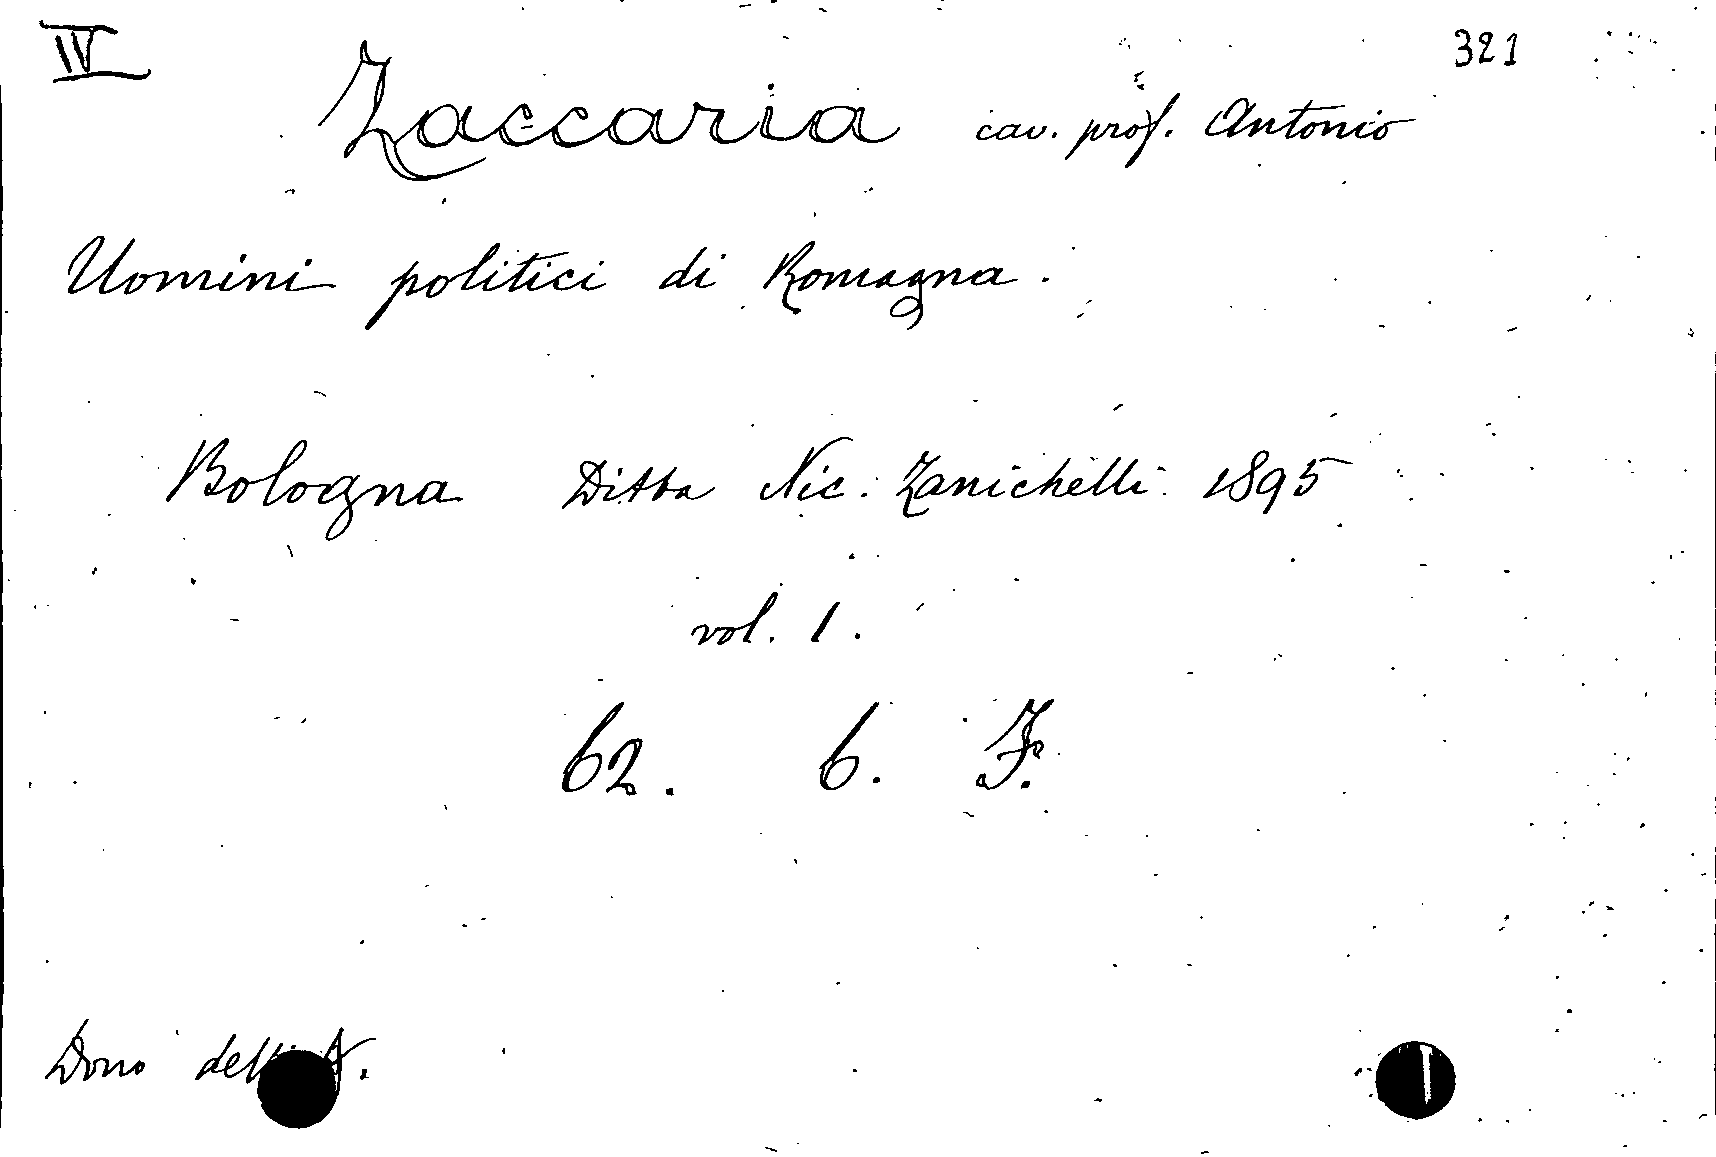 IV 321
Zaccaria cav. prof. Antonio
Uomini politici di Romagna.
Bologna Ditta Nic. Zanichelli 1895
vol. 1.
62. 6. F.
Dono dell' A.